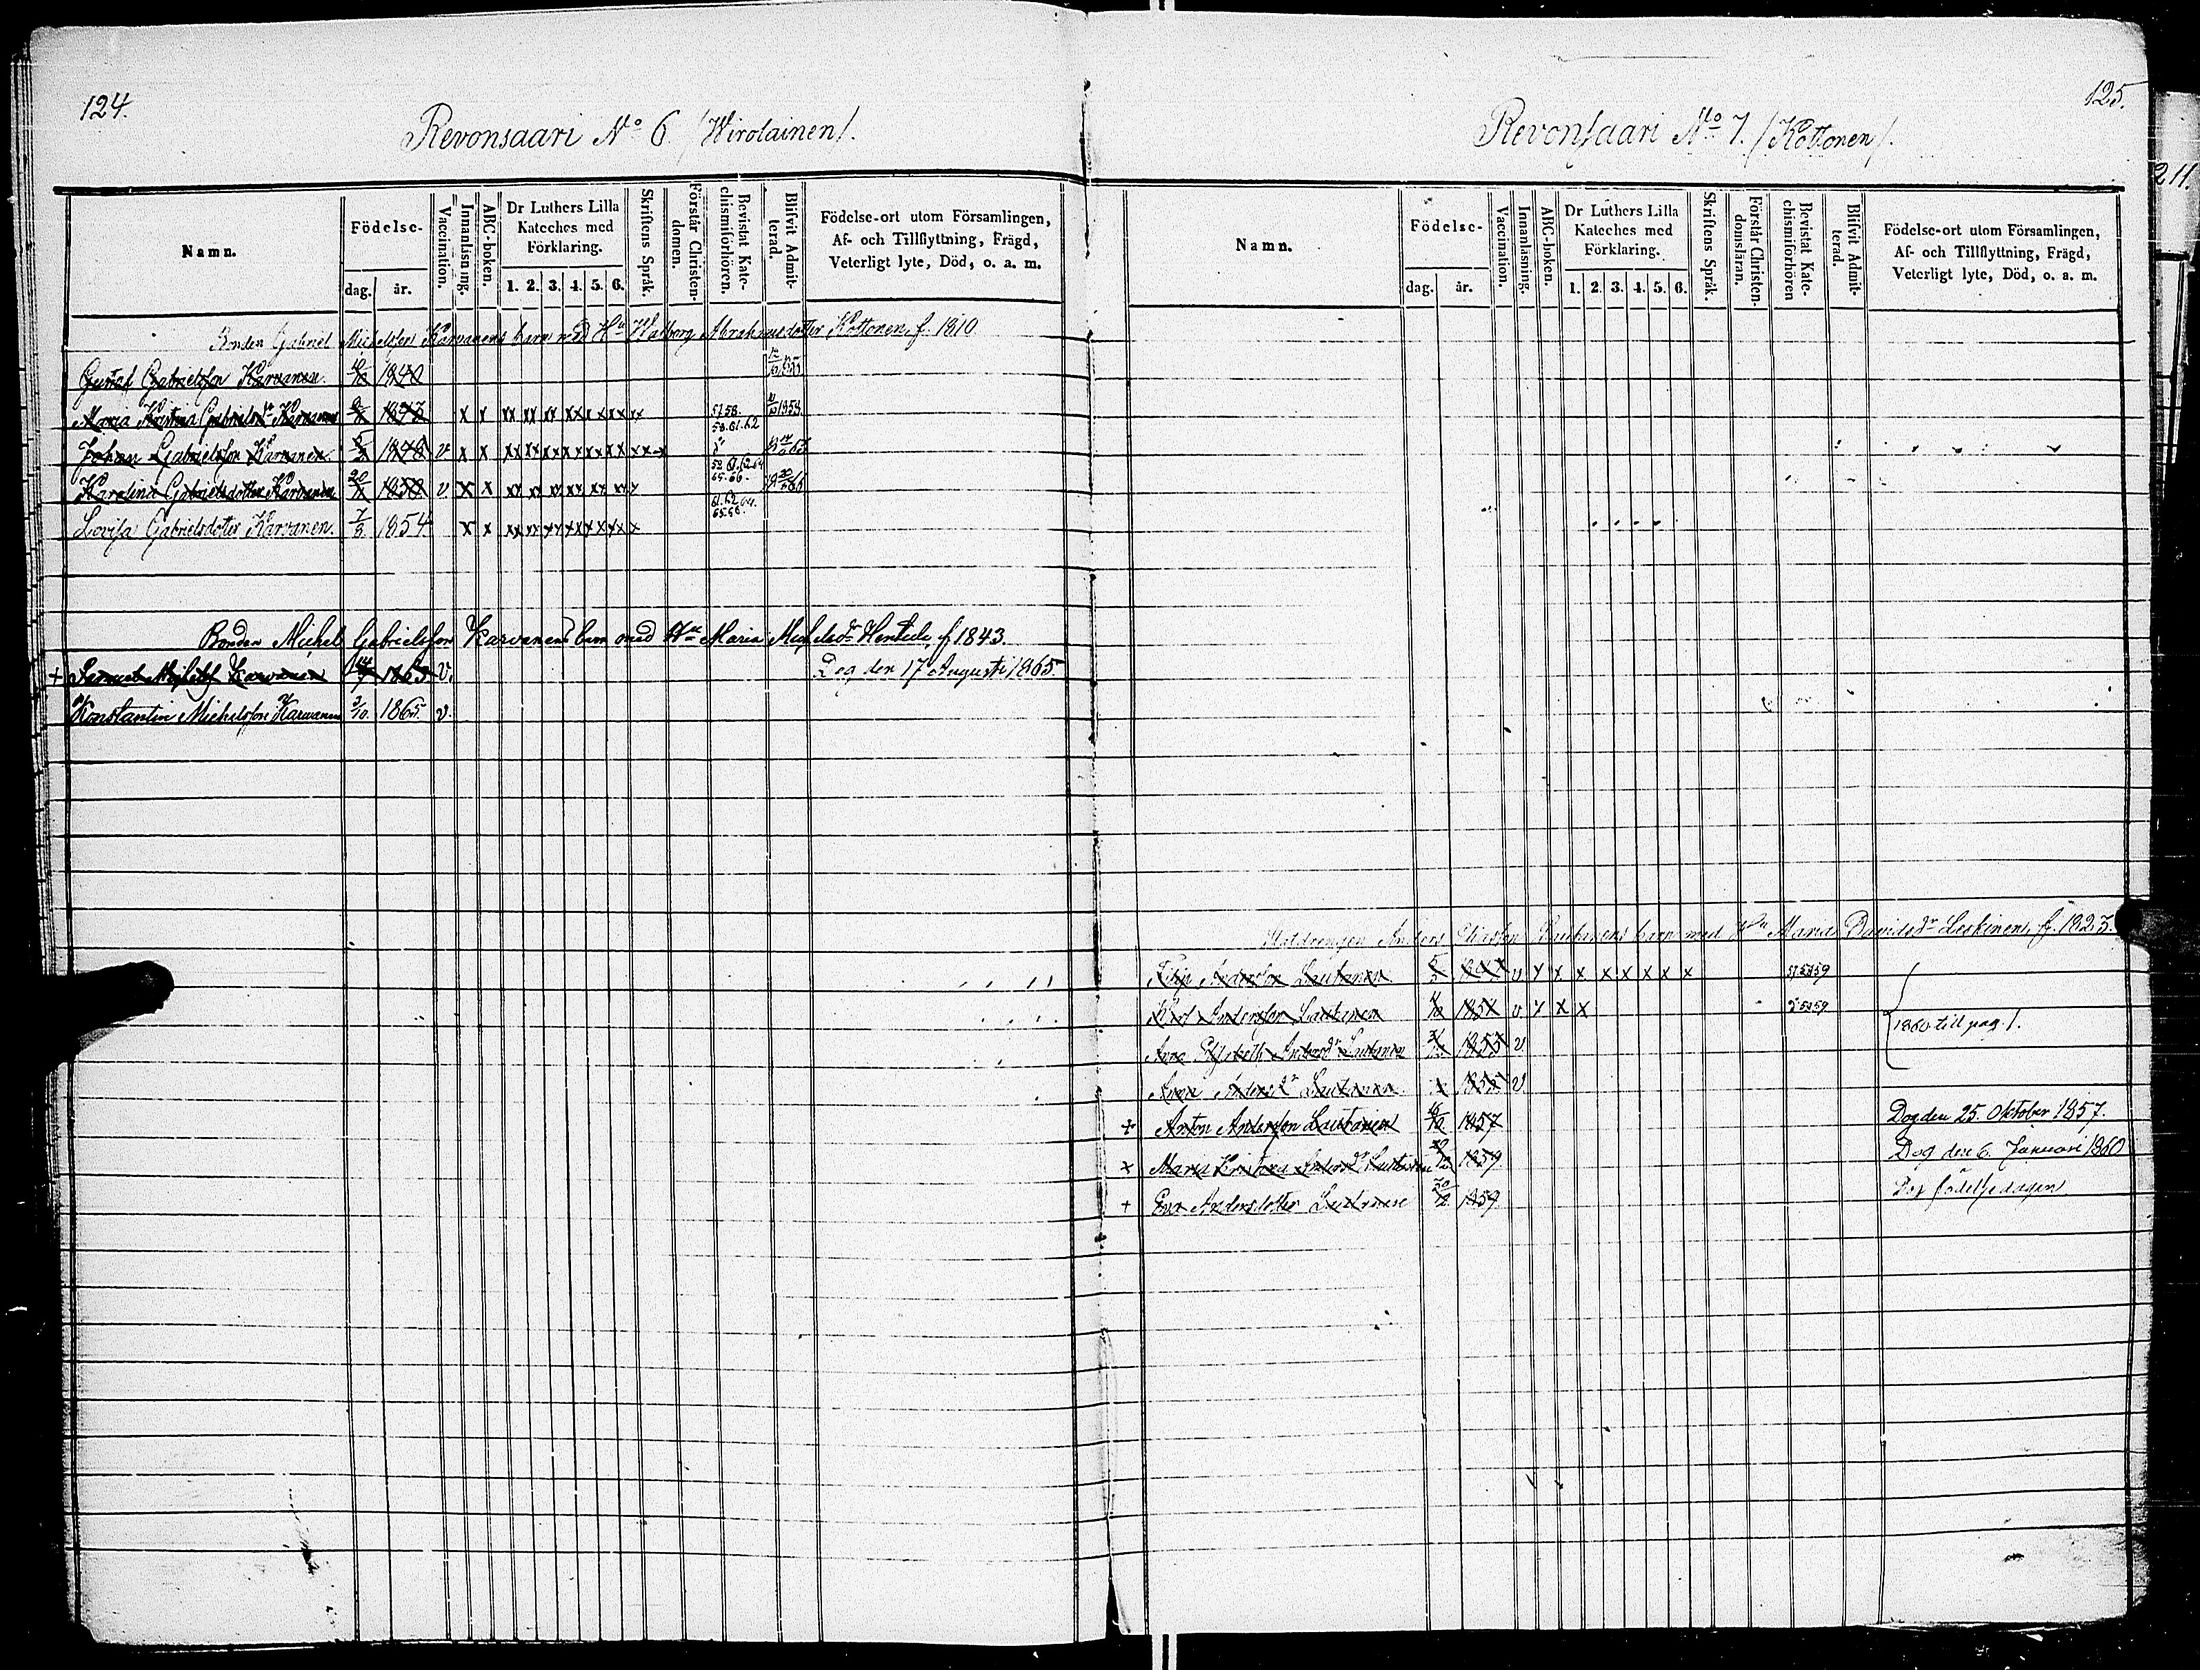 124.
Revonsaari No 6. /Wirolainen/.
Namn.
Födelse-
dag.
år.
Vaccination.
Innanläsning.
ABC-boken.
Dr Luthers Lilla Kateches med Förklaring.
1. 2. 3. 4. 5. 6.
Skriftens Språk.
Förstår Christendomen.
Bevistat Katechismiförhören.
Blifvit Admitterad.
Födelse-ort utom Församlingen, Af- och Tillflyttning, Frägd, Veterligt lyte, Död, o. a. m.
Bonden Gabriel Michelsson Karvanens barn med Hu Walborg Abrahamsdotter Kottonen, f. 1810
Gustaf Gabrielsson Karvanen. 1840
Maria Kristina Gabrielsdr Karvanen x x xx xx xx xx x x xx xx 57.58.
Johan Gabrielsson Karvanen. 1848 v x x xx xx xx xx xx xx 58.61.62
Karolina Gabrielsdotter Karvanen 20 1850 v x x xx xx xx xx xx xx 65.66.
Lovisa Gabrielsdotter Karvanen. 7/3 1854 x x xx xx xx xx xx xx x 61.62.64. 65.66.
Bonden Michel Gabrielsson Karvanens barn med Hu Maria Michelsdr f 1843.
+ Samuel Michelss Karvanen 1863 v. Dog den 17 Augusti 1865.
Konstantin Michelsson Karvanen 3/10. 1865. v.
125.
Revonsaari No 7. /Kottonen/.
Namn.
Födelse-
dag.
år.
Vaccination.
Innanläsning.
ABC-boken.
Dr Luthers Lilla Kateches med Förklaring.
1. 2. 3. 4. 5. 6.
Skriftens Språk.
Förstår Christendomsläran.
Bevistat Katechismiförhören
Blifvit Admitterad.
Födelse-ort utom Församlingen, Af- och Tillflyttning, Frägd, Veterligt lyte, Död, o. a. m.
Anders Lautanens barn med Hu Maria Davidsdr Leskinen, f. 1823.
Filip Andersson Lautanen v x x x x x x x x 57 58 59
Karl Andersson Lautanen v x x x 58 59
1860 till pag. 1.
Anna Elisabeth Andersdr Lautanen 1855 v
Anna Andersdr Lautanen v
+ Anton Andersson Lautanen 1857 Dog den 25. Oktober 1857.
x Maria Kristina Andersdr Lautanen 1859. Dog den 6. Januari 1860
+ Eva Andersdotter Lautanen 1859. Dog födelsedagen
211.